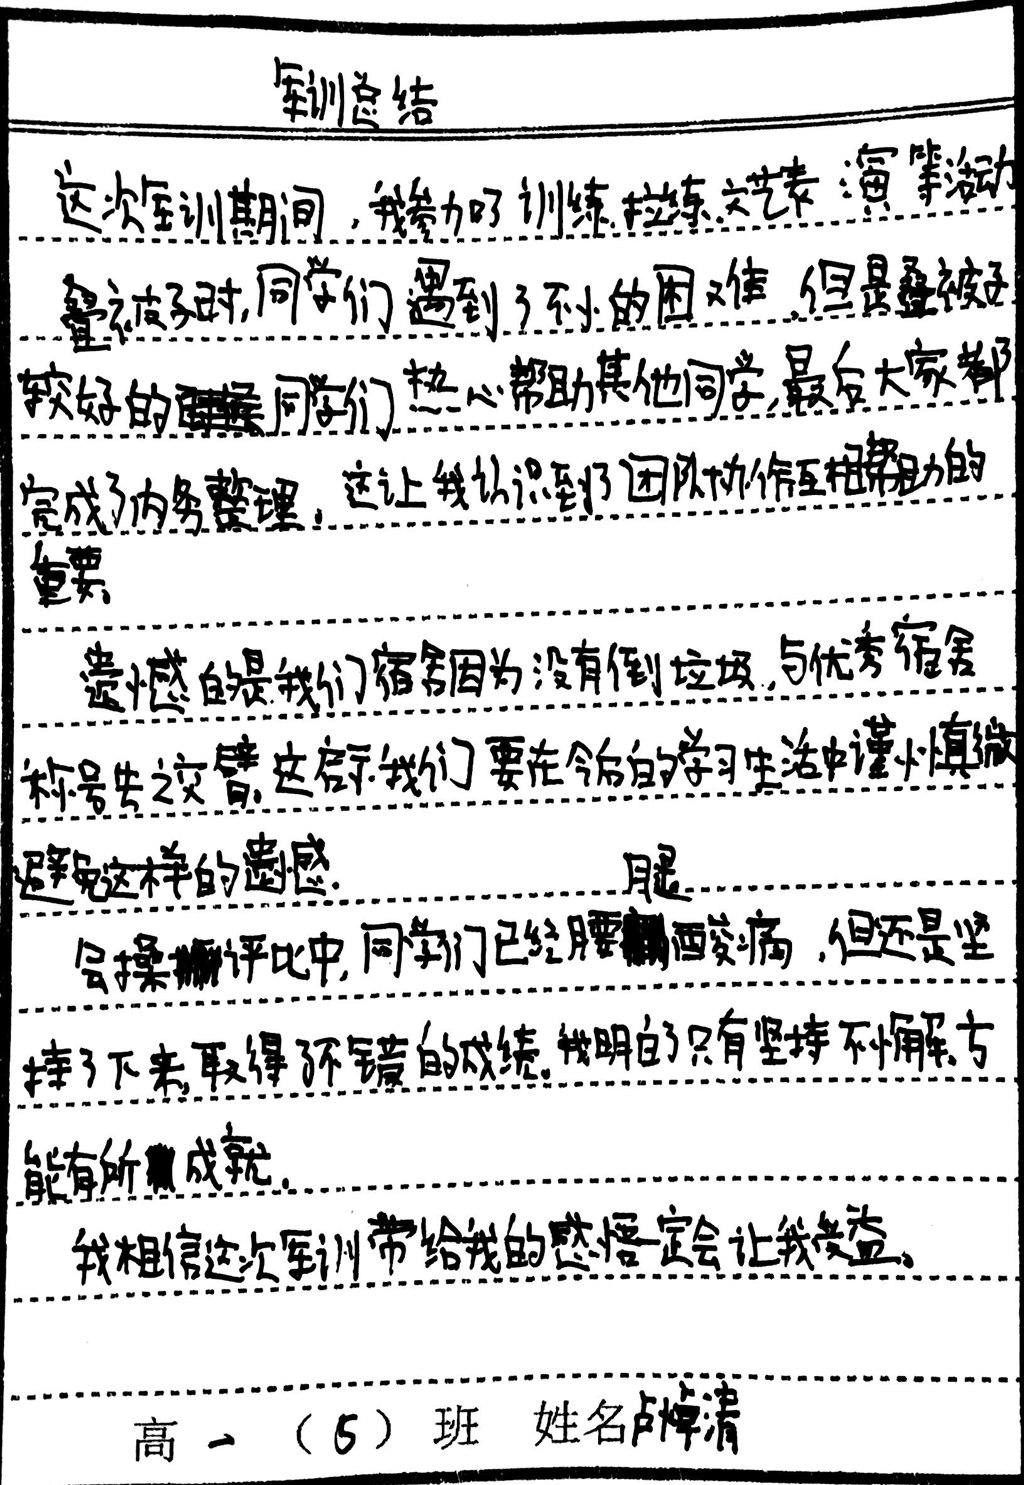 军训总结
这次军训期间，我参加了训练、拉练、文艺表演等活动
叠被子时，同学们遇到了不小的困难，但是叠被子
较好的同学们热心帮助其他同学，最后大家都
完成了内务整理。这让我认识到了团队协作互相帮助的
重要。
遗憾的是我们宿舍因为没有倒垃圾，与优秀宿舍
称号失之交臂。这启示我们要在今后的学习生活中谨小慎微
避免这样的遗憾.
会操评比中，同学们已经腰腿酸痛，但还是坚
持了下来，取得了不错的成绩。我明白了只有坚持不懈，方
能有所成就.
我相信这次军训带给我的感悟一定会让我受益。
高一（5）班 姓名卢焯清